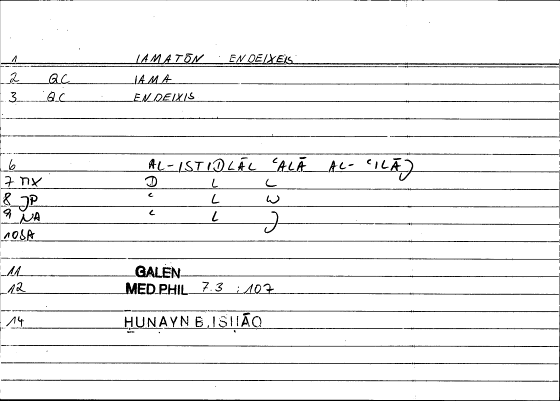 1 IAMATŌN ENDEIXEIS
2 QC IAMA
3 QC ENDEIXIS
6 AL-ISTIDLĀL ʿALĀ AL-ʿILĀJ
7 MX D L L
8 JP ʿ L W
9 NA ʿ L J
10 SA
11 GALEN
12 MED PHIL 7.3 : 107
14 ḤUNAYN B. ISḤĀQ